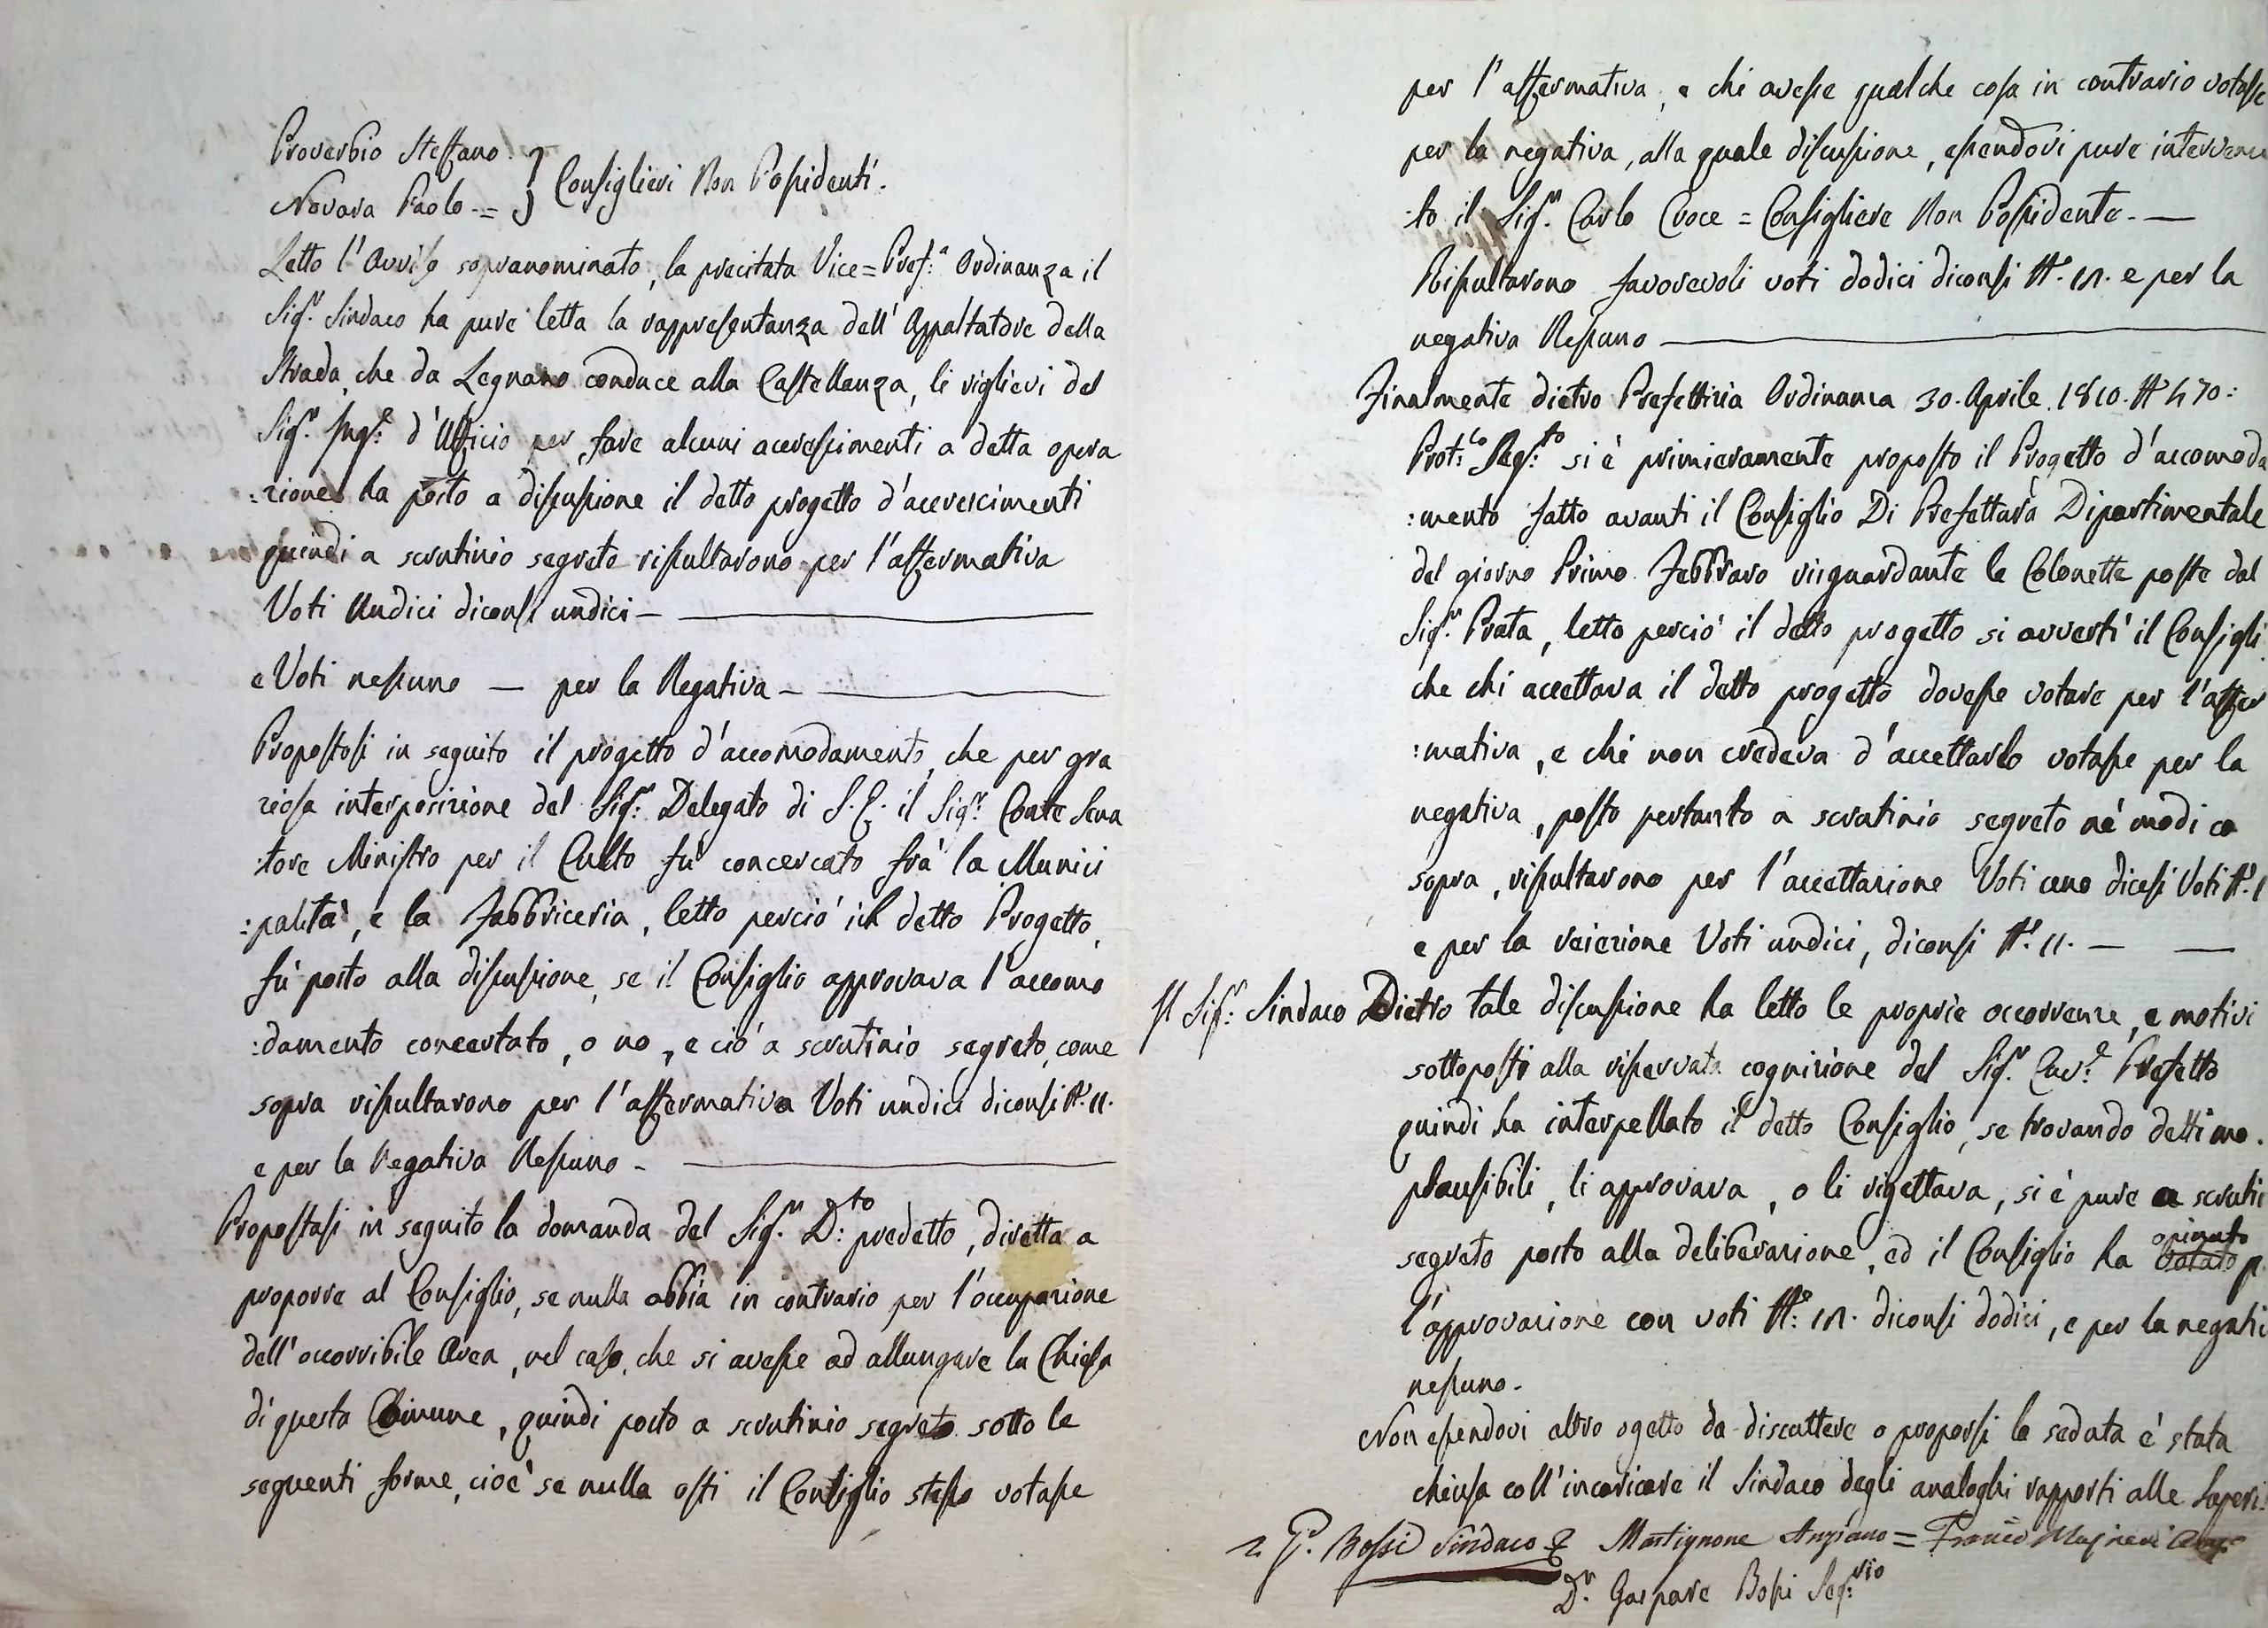 Proverbio Steffano.
Novara Paolo -= } Consiglieri Non Possidenti.
Letto l'Avviso sopranominato, la precitata Vice=Pref:ª Ordinanza il
Sig.r Sindaco ha pure letta la rappresentanza dell'Appaltatore della
Strada, che da Legnano conduce alla Castellanza, li viglievi del
Sig.r Ing:e d'Ufficio per fare alcuni acerescimenti a detta opera
:zione ha posto a discussione il detto progetto d'acerescimenti
quindi a scrutinio segreto risultarono per l'affermativa
Voti Undici diconsi undici —
e Voti nessuno — per la Negativa —
Propostosi in seguito il progetto d'accomodamento, che per gra
ziosa interposizione del Sig:r Delegato di S. E. il Sig:r Conte Sena
:tore Ministro per il Culto fù concercato frà la Munici
:palità, e la Fabbriceria, letto perciò il detto Progetto,
fù posto alla discussione, se il Consiglio approvava l'accomo
:damento concertato, o no, e ciò a scrutinio segreto, come
sopra risultarono per l'affermativa Voti undici diconsi N.° 11.
e per la Negativa Nessuno -
Propostasi in seguito la domanda del Sig.r D:to predetto, diretta a
proporre al Consiglio, se nulla abbia in contrario per l'occupazione
dell'occorribile Area, nel caso, che si avesse ad allungare la Chiesa
di questa Comune, quindi posto a scrutinio segreto sotto le
seguenti forme, cioè se nulla osti il Consiglio stesso votasse
per l'affermativa, e chi avesse qualche cosa in contrario votasse
per la negativa, alla quale discussione, essendovi pure intervenu
:to il Sig.r Carlo Croce = Consigliere Non Possidente. —
Risultarono favorevoli voti dodici diconsi N.° 12. e per la
negativa Nessuno —
Finalmente dietro Prefettizia Ordinanza 30. Aprile 1810. N° 470:
Prot:lo Seg:to si è primieramente proposto il Progetto d'accomoda
:mento fatto avanti il Consiglio Di Prefettura Dipartimentale
del giorno Primo Febbraro risguardante le Colonette poste dal
Sig.r Prata, letto perciò il detto progetto si avvertì il Consigli
che chi accettava il detto progetto dovesse votare per l'affer
:mativa, e chi non credeva d'accettarlo votasse per la
negativa, posto pertanto a scrutinio segreto nè modi co
sopra, risultarono per l'accettazione Voti uno dicesi Voti N.° 1
e per la reiezione Voti undici, diconsi N.° 11. — —
Il Sig:r Sindaco Dietro tale discussione ha letto le proprie occorrenze, e motivi
sottoposti alla riservata cognizione del Sig.r Cav:e Prefetto
quindi ha interpellato il detto Consiglio, se trovando detti mo.
plausibili, li approvava, o li rigettava, si è pure a scruti
segreto posto alla deliberazione, ed il Consiglio ha votato opinato p
l'approvazione con voti N.° 12. diconsi dodici, e per la negati
nessuno.
Non essendovi altro ogetto da discuttere o proporsi la seduta è stata
chiusa coll'incaricare il Sindaco degli analoghi rapporti alle Superi:
Bossi Sindaco Martignone Anziano =
D.r Gaspare Bossi Seg:rio